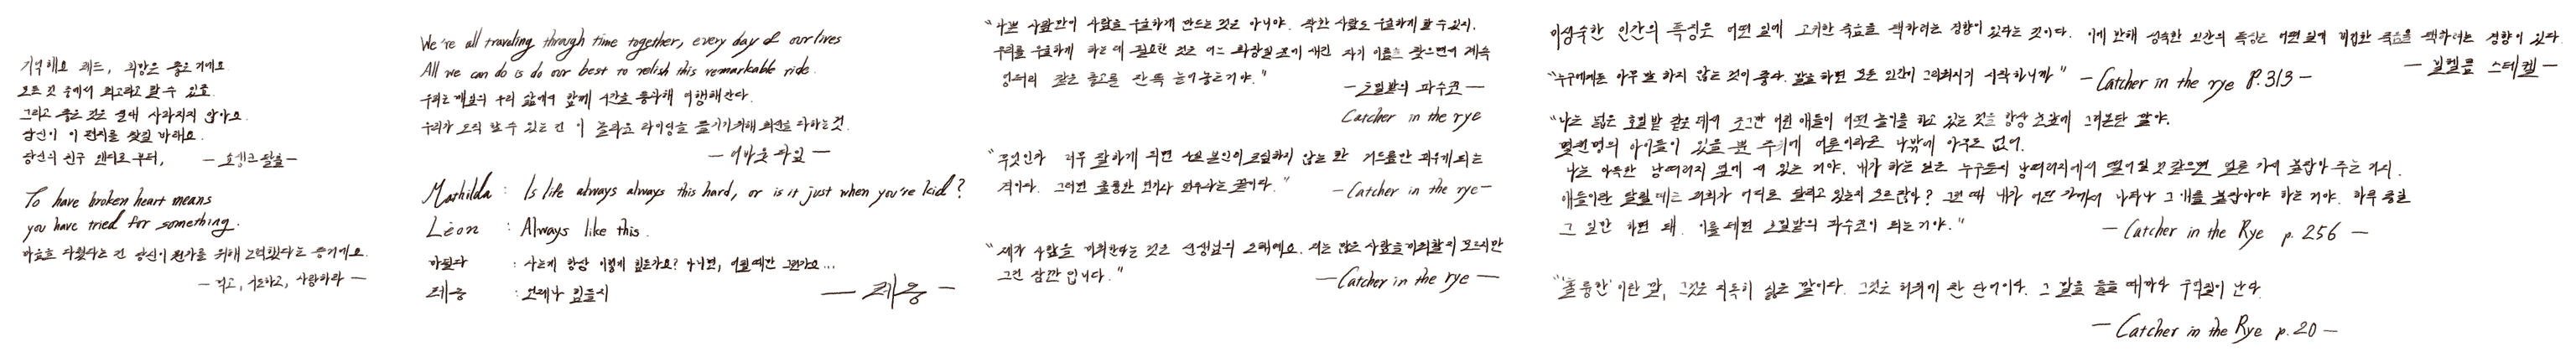 기억해요 레드, 희망은 좋은 거예요.
모든 것 중에서 최고라고 할 수 있죠.
그리고 좋은 것은 절대 사라지지 않아요.
당신이 이 편지를 찾길 바래요.
당신의 친구 앤디로부터, — 쇼생크 탈출 —
To have broken heart means
you have tried for something.
마음을 다쳤다는 건 당신이 뭔가를 위해 노력했다는 증거예요.
— 먹고, 기도하고, 사랑하라 —
We're all traveling through time together, every day of our lives
All we can do is do our best to relish this remarkable ride.
우리는 매일의 우리 삶에서 함께 시간을 통과해 여행해간다.
우리가 오직 할 수 있는 건 이 놀라운 라이딩을 즐기기 위해 최선을 다하는 것.
— 어바웃 타임 —
Mathilda : Is life always always this hard, or is it just when you're kid?
Léon : Always like this.
마틸다 : 사는게 항상 이렇게 힘든가요? 아니면, 어릴때만 그런가요...
레옹 : 언제나 힘들지
— 레옹 —
"나쁜 사람만이 사람을 우울하게 만드는 것은 아니야. 착한 사람도 우울하게 할 수 있지.
우리를 우울하게 하는 데 필요한 것은 어느 화장실 문에 새긴 자기 이름을 찾으면서 계속
엉터리 같은 충고를 잔뜩 늘어놓는거야."
— 호밀밭의 파수꾼 —
Catcher in the rye
"무엇인가 너무 잘하게 되면 자신 본인이 조심하지 않는 한 겉드름만 피우게 되는
격이다. 그러면 훌륭한 연기자 와우나는 끝이다." — Catcher in the rye —
"제가 사람을 미워한다는 것은 선생님의 오해예요. 저는 많은 사람을 미워할지 모르지만
그건 잠깐 입니다." — Catcher in the rye —
미성숙한 인간의 특징은 어떤 일에 고귀한 죽음을 택하려는 경향이 있다는 것이다. 이에 반해 성숙한 인간의 특징은 어떤 일에 비겁한 죽음을 택하려는 경향이 있다.
— 빌헬름 스테켈 —
"누구에게든 아무 말 하지 않는 것이 좋다. 말을 하면 모든 인간이 그리워지기 시작하니까" — Catcher in the rye P.313 —
"나는 넓은 호밀밭 같은 데서 조그만 어린 애들이 어떤 놀이를 하고 있는 것을 항상 눈앞에 그려본단 말야.
몇천명의 아이들이 있을 뿐 주위에 어른이라곤 나밖에 아무도 없어.
나는 아득한 낭떠러지 옆에 서 있는 거야. 내가 하는 일은 누구든지 낭떠러지에서 떨어질 것 같으면 얼른 가서 붙잡아 주는 거지.
애들이란 달릴 때는 저희가 어디로 달리고 있는지 모르잖아? 그런 때 내가 어딘가에서 나타나 그 애를 붙잡아야 하는 거야. 하루 종일
그 일만 하면 돼. 이를 테면 호밀밭의 파수꾼이 되는거야."
— Catcher in the Rye p. 256 —
"'훌륭한' 이란 말, 그것은 지독히 싫은 말이다. 그것은 허위에 찬 단어이다. 그 말을 들을 때마다 구역질이 난다.
— Catcher in the Rye p.20 —